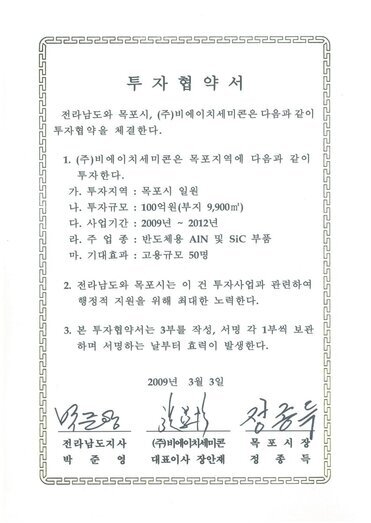 투자협약서
전라남도와 목포시, (주)비에이치세미콘은 다음과 같이
투자협약을 체결한다.
1. (주)비에이치세미콘은 목포지역에 다음과 같이
투자한다.
가. 투자지역 : 목포시 일원
나. 투자규모 : 100억원(부지 9,900㎡)
다. 사업기간 : 2009년 ~ 2012년
라. 주 업 종 : 반도체용 AlN 및 SiC 부품
마. 기대효과 : 고용규모 50명
2. 전라남도와 목포시는 이 건 투자사업과 관련하여
행정적 지원을 위해 최대한 노력한다.
3. 본 투자협약서는 3부를 작성, 서명 각 1부씩 보관
하며 서명하는 날부터 효력이 발생한다.
2009년 3월 3일
전라남도지사 (주)비에이치세미콘 목포시장
박준영 대표이사 장안재 정종득